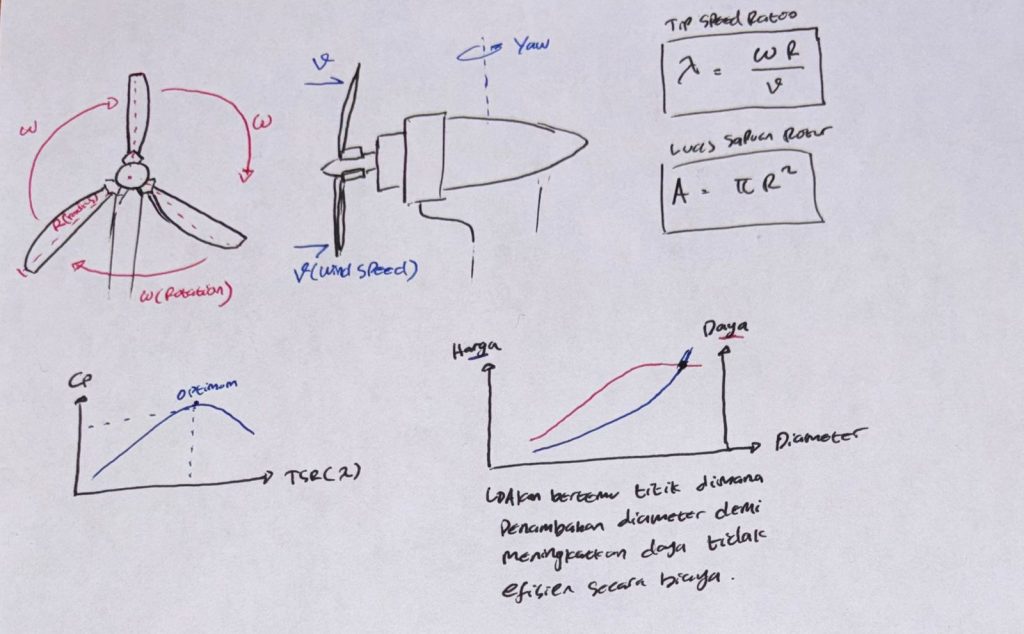 ω
ω
R(radius)
ω(Rotation)
v
Yaw
v(wind speed)
Tip Speed Ratio
λ = ωR/v
Luas Sapuan Rotor
A = πR²
CP
optimum
TSR(λ)
Harga
Daya
Diameter
↳ Akan bertemu titik dimana
Penambahan diameter demi
meningkatkan daya tidak
efisien secara biaya.